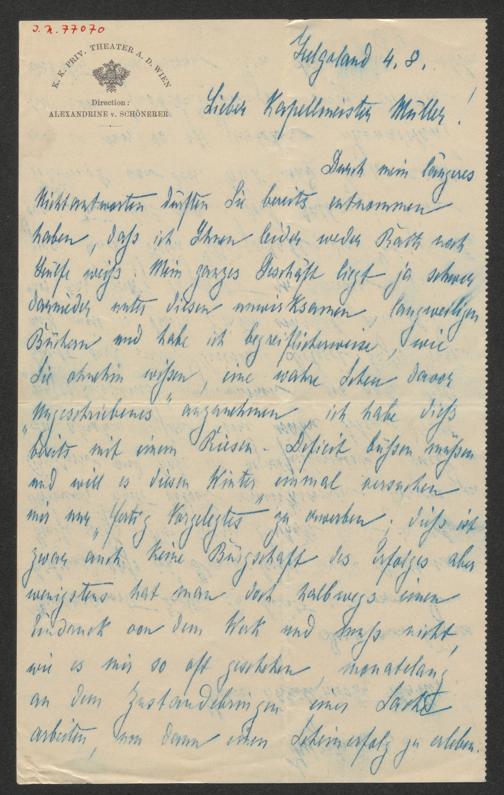 J. N. 77070
K. K. PRIV. THEATER A. D. WIEN
Direction:
ALEXANDRINE v. SCHÖNERER.
Helgoland 4. 8.
Lieber Kapellmeister Müller!
Durch mein längeres
Nichtantworten dürften Sie bereits entnommen
haben, daß ich Ihnen leider weder Rath noch
Hülfe weiß. Mein ganzes Geschäft liegt ja schwer
darnieder unter diesen unwirksamen langweiligen
Büchern und habe ich begreiflicherweise, wie
Sie ohnehin wissen, eine wahre Scheu davor
"Ungeschriebenes" anzunehmen ich habe dieß
bereits mit einem Riesen-Deficit büßen müssen
und will es diesen Winter einmal versuchen
mir nur "fertig Vorgelegtes" zu erwerben; dieß ist
zwar auch keine Bürgschaft des Erfolges aber
wenigstens hat man doch halbwegs einen
Eindruck von dem Werk und muß nicht,
wie es mir so oft geschehen, monatelang
an dem Zustandebringen einer Sache
arbeiten, um dann einen Scheinerfolg zu erleben.